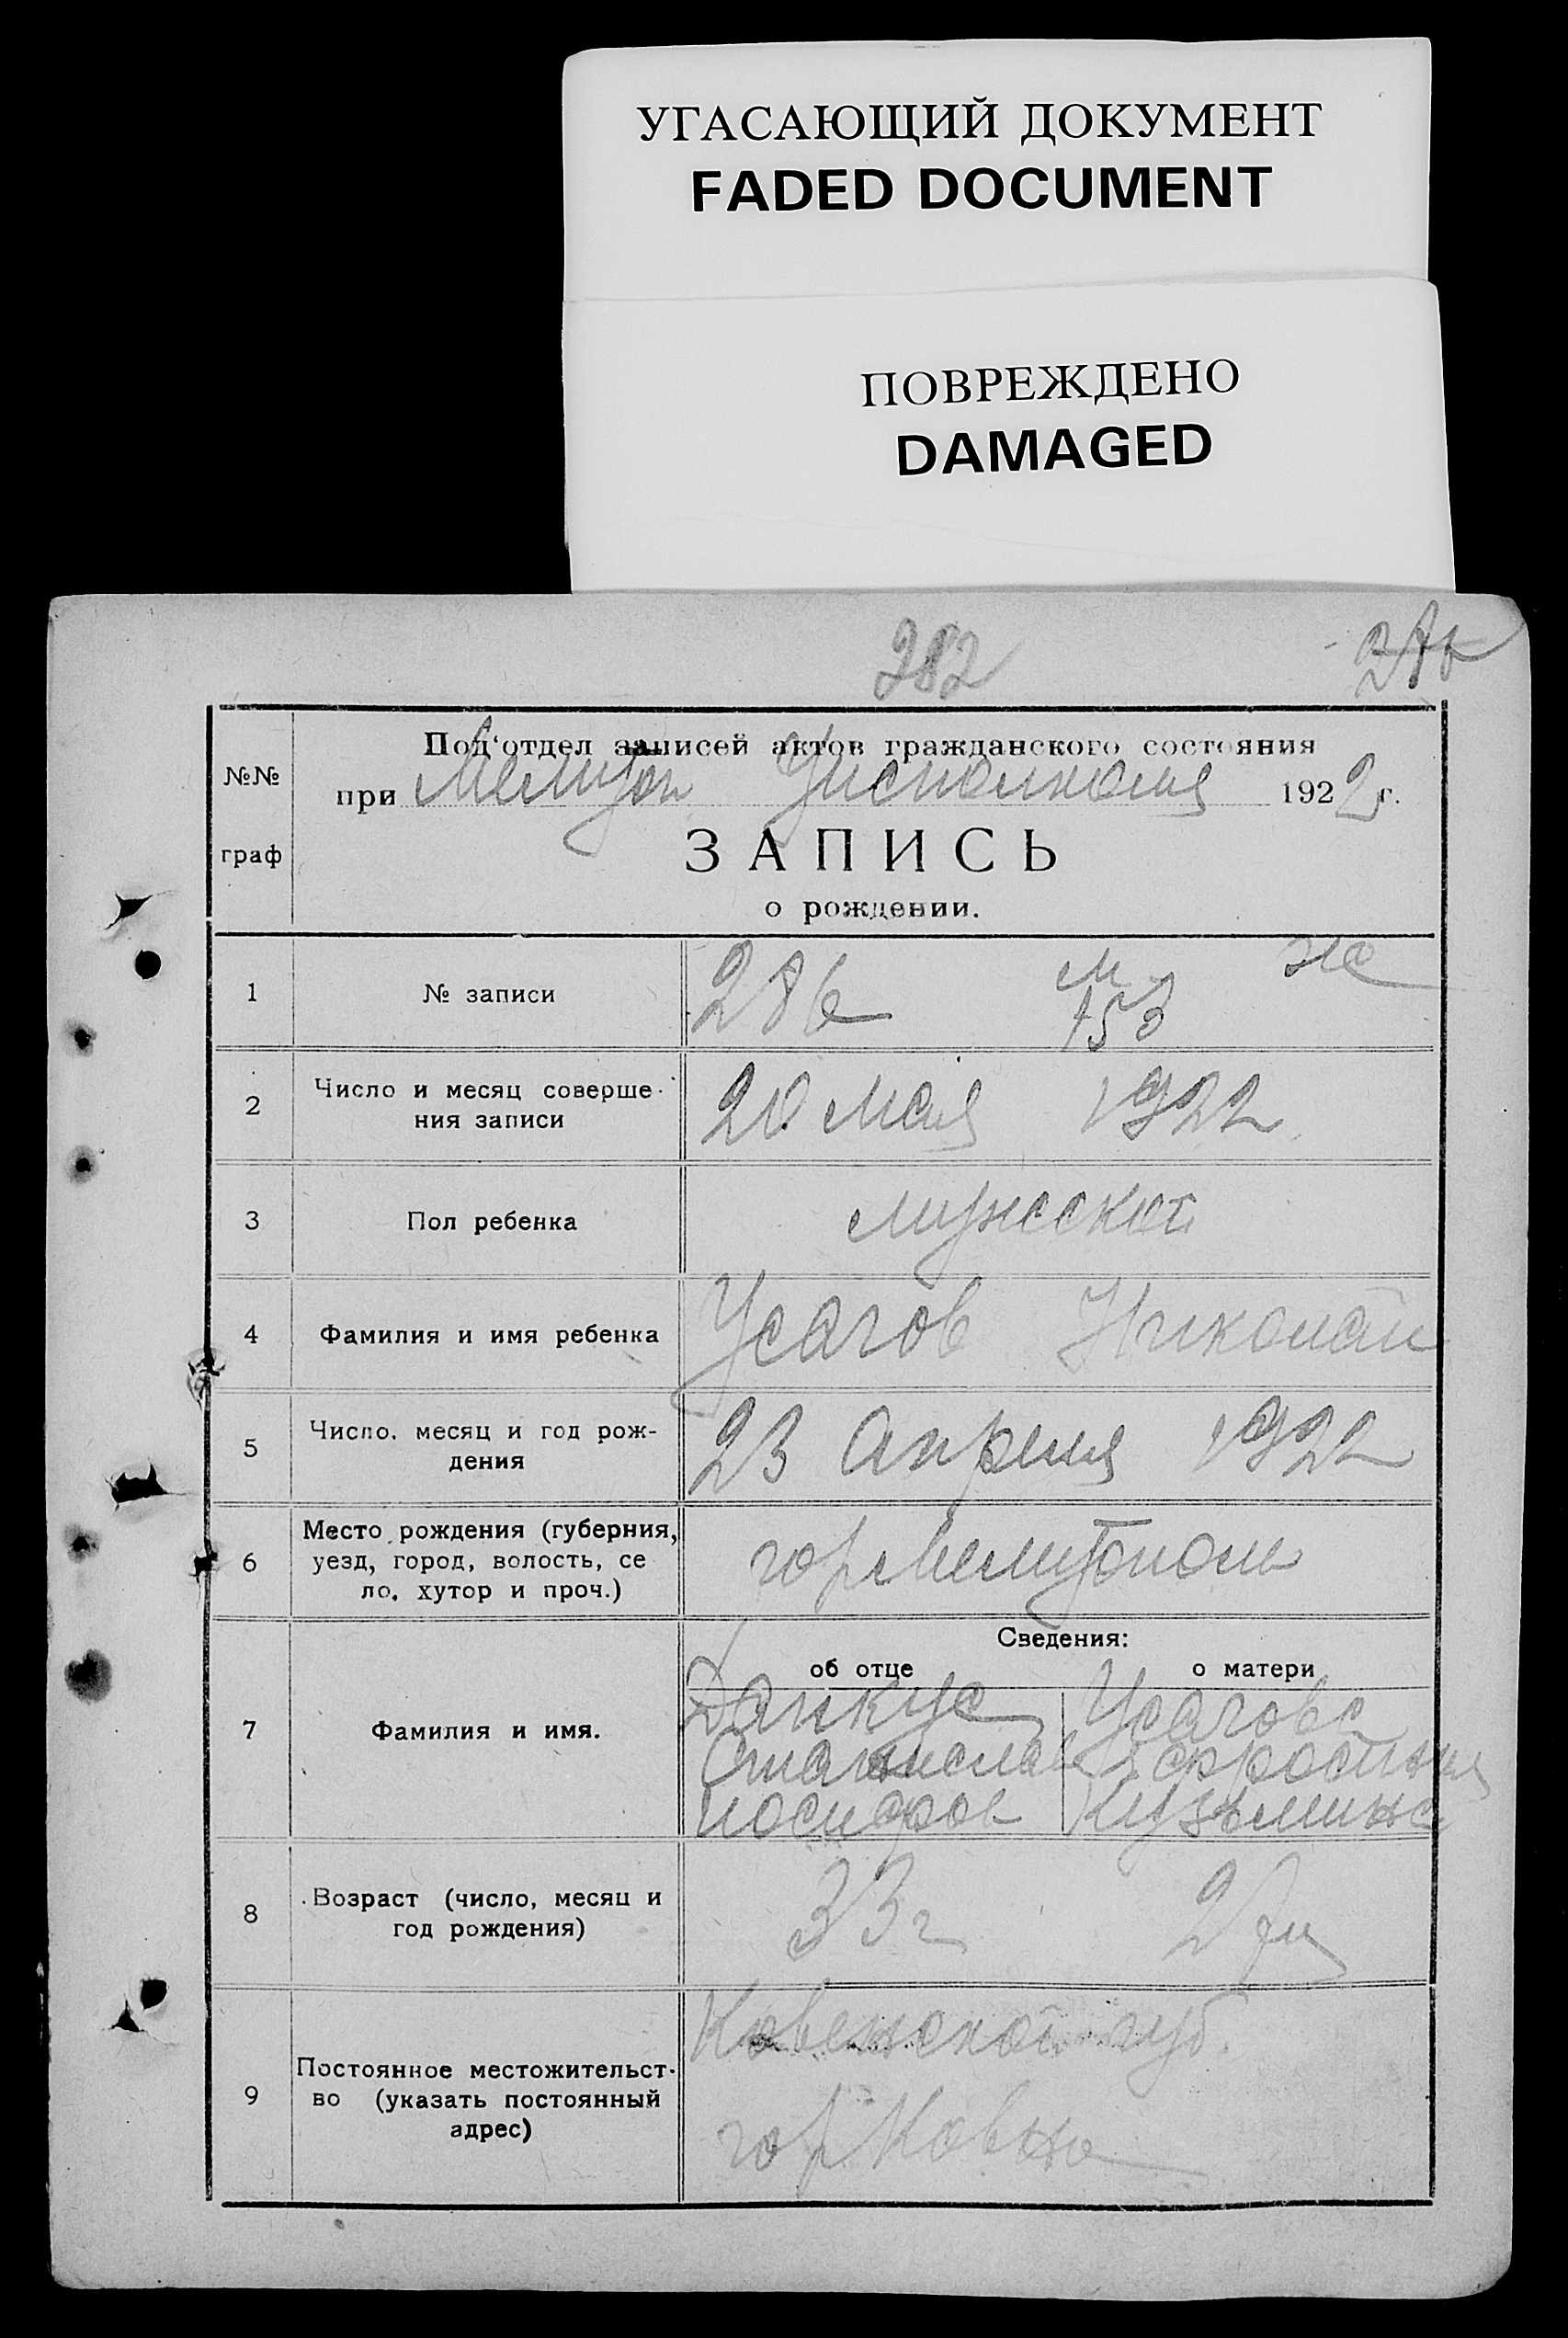 УГАСАЮЩИЙ ДОКУМЕНТ
FADED DOCUMENT
ПОВРЕЖДЕНО
DAMAGED
282
286
№№
граф
Под'отдел записей актов гражданского состояния
при Мелитоп Уисполкома 1922 г.
ЗАПИСЬ
о рождении.
1 № записи 286 м 153 ж
2 Число и месяц соверше-
ния записи
20 мая 1922
3 Пол ребенка мужской
4 Фамилия и имя ребенка Усагов Николай
5 Число, месяц и год рож-
дения
23 Апреля 1922
6 Место рождения (губерния,
уезд, город, волость, се
ло, хутор и проч.)
гор Мелитополь
Сведения:
об отце о матери
7 Фамилия и имя.
Данкус Усагова
Станислав Ефросиния
Иосифов Кузьмина
8 Возраст (число, месяц и
год рождения)
33 г
9 Постоянное местожительст-
во (указать постоянный
адрес)
Ковенской губ.
гор Ковно